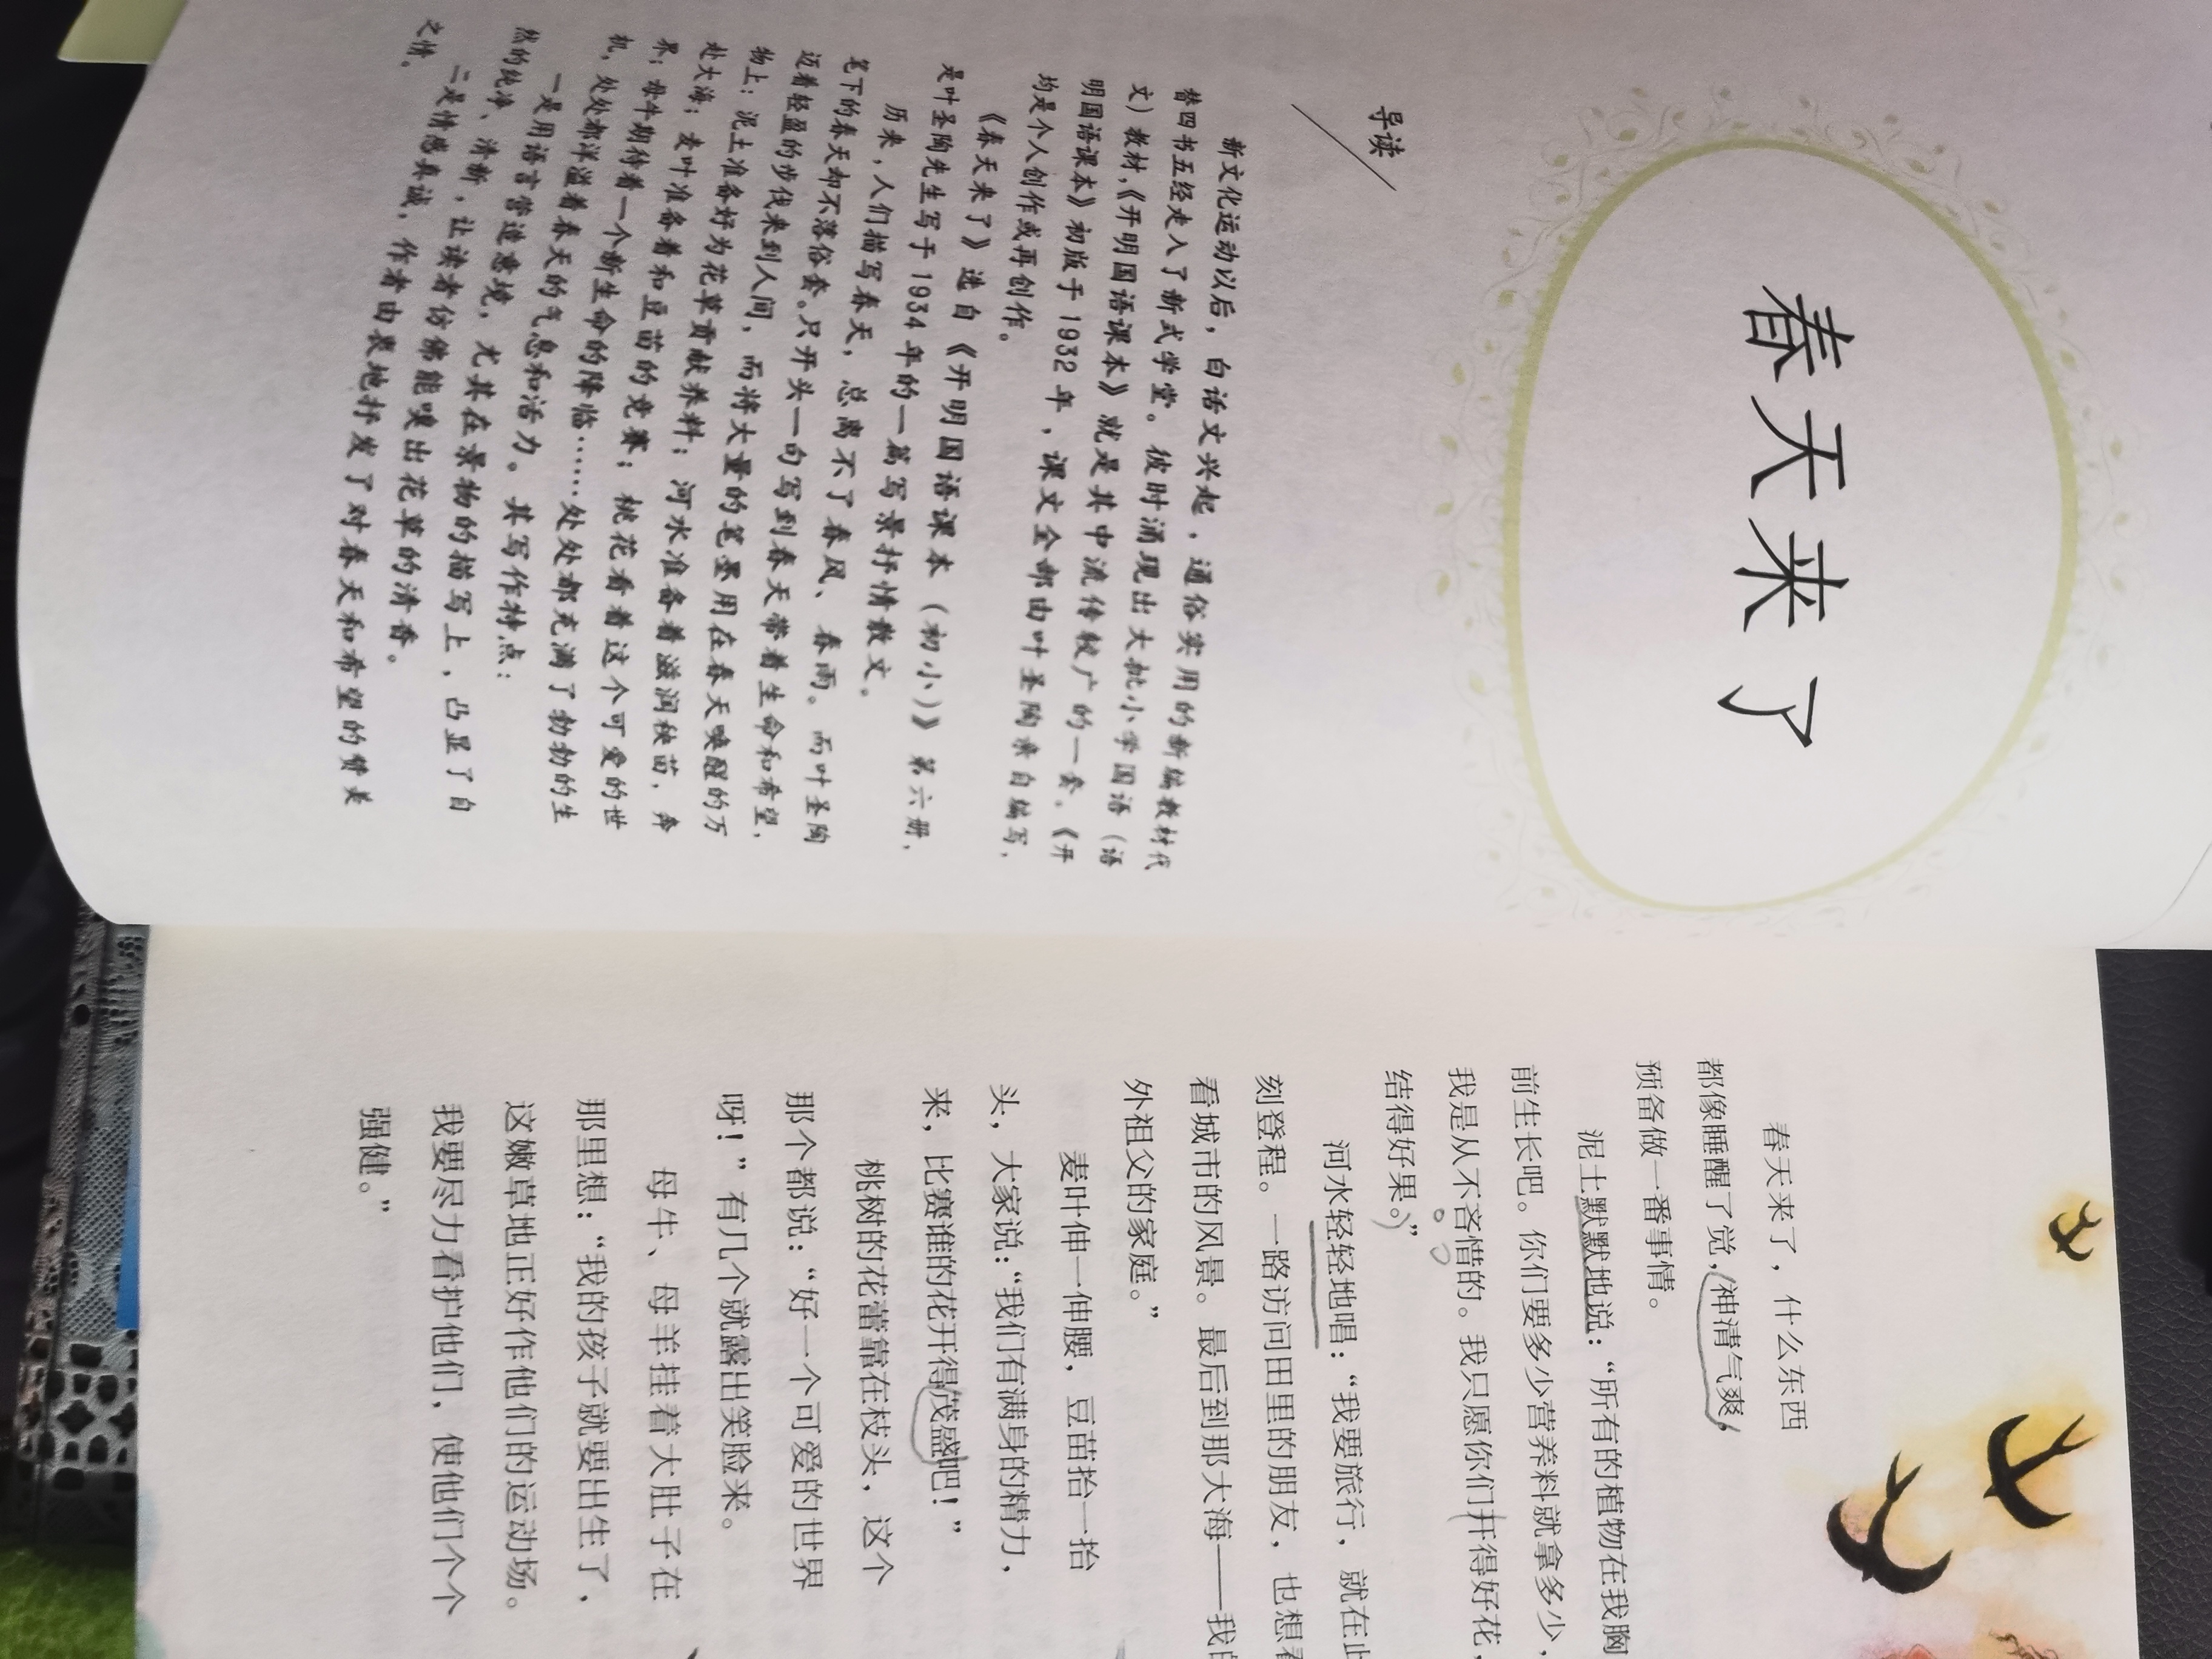 春天来了
导读
新文化运动以后，白话文兴起，通俗实用的新编教材代
替四书五经走入了新式学堂。彼时涌现出大批小学国语（语
文）教材，《开明国语课本》就是其中流传较广的一套。《开
明国语课本》初版于1932年，课文全部由叶圣陶亲自编写，
均是个人创作或再创作。
《春天来了》选自《开明国语课本（初小）》第六册，
是叶圣陶先生写于1934年的一篇写景抒情散文。
历来，人们描写春天，总离不了春风、春雨。而叶圣陶
笔下的春天却不落俗套。只开头一句写到春天带着生命和希望，
迈着轻盈的步伐来到人间，而将大量的笔墨用在春天唤醒的万
物上：泥土准备好为花草贡献养料；河水准备着滋润秧苗，奔
赴大海；麦叶准备着和豆苗的竞赛；桃花看着这个可爱的世
界；母牛期待着一个新生命的降临……处处都充满了勃勃的生
机，处处都洋溢着春天的气息和活力。其写作特点：
一是用语言营造意境，尤其在景物的描写上，凸显了自
然的纯净、清新，让读者仿佛能嗅出花草的清香。
二是情感真诚，作者由衷地抒发了对春天和希望的赞美
之情。
春天来了，什么东西
都像睡醒了觉，神清气爽，
预备做一番事情。
泥土默默地说：“所有的植物在我胸
前生长吧。你们要多少营养料就拿多少，
我是从不吝惜的。我只愿你们开得好花，
结得好果。”
河水轻轻地唱：“我要旅行，就在此
刻登程。一路访问田里的朋友，也想看
看城市的风景。最后到那大海——我的
外祖父的家庭。”
麦叶伸一伸腰，豆苗抬一抬
头，大家说：“我们有满身的精力，
来，比赛谁的花开得茂盛吧！”
桃树的花蕾靠在枝头，这个
那个都说：“好一个可爱的世界
呀！”有几个就露出笑脸来。
母牛、母羊挂着大肚子在
那里想：“我的孩子就要出生了，
这嫩草地正好作他们的运动场。
我要尽力看护他们，使他们个个
强健。”